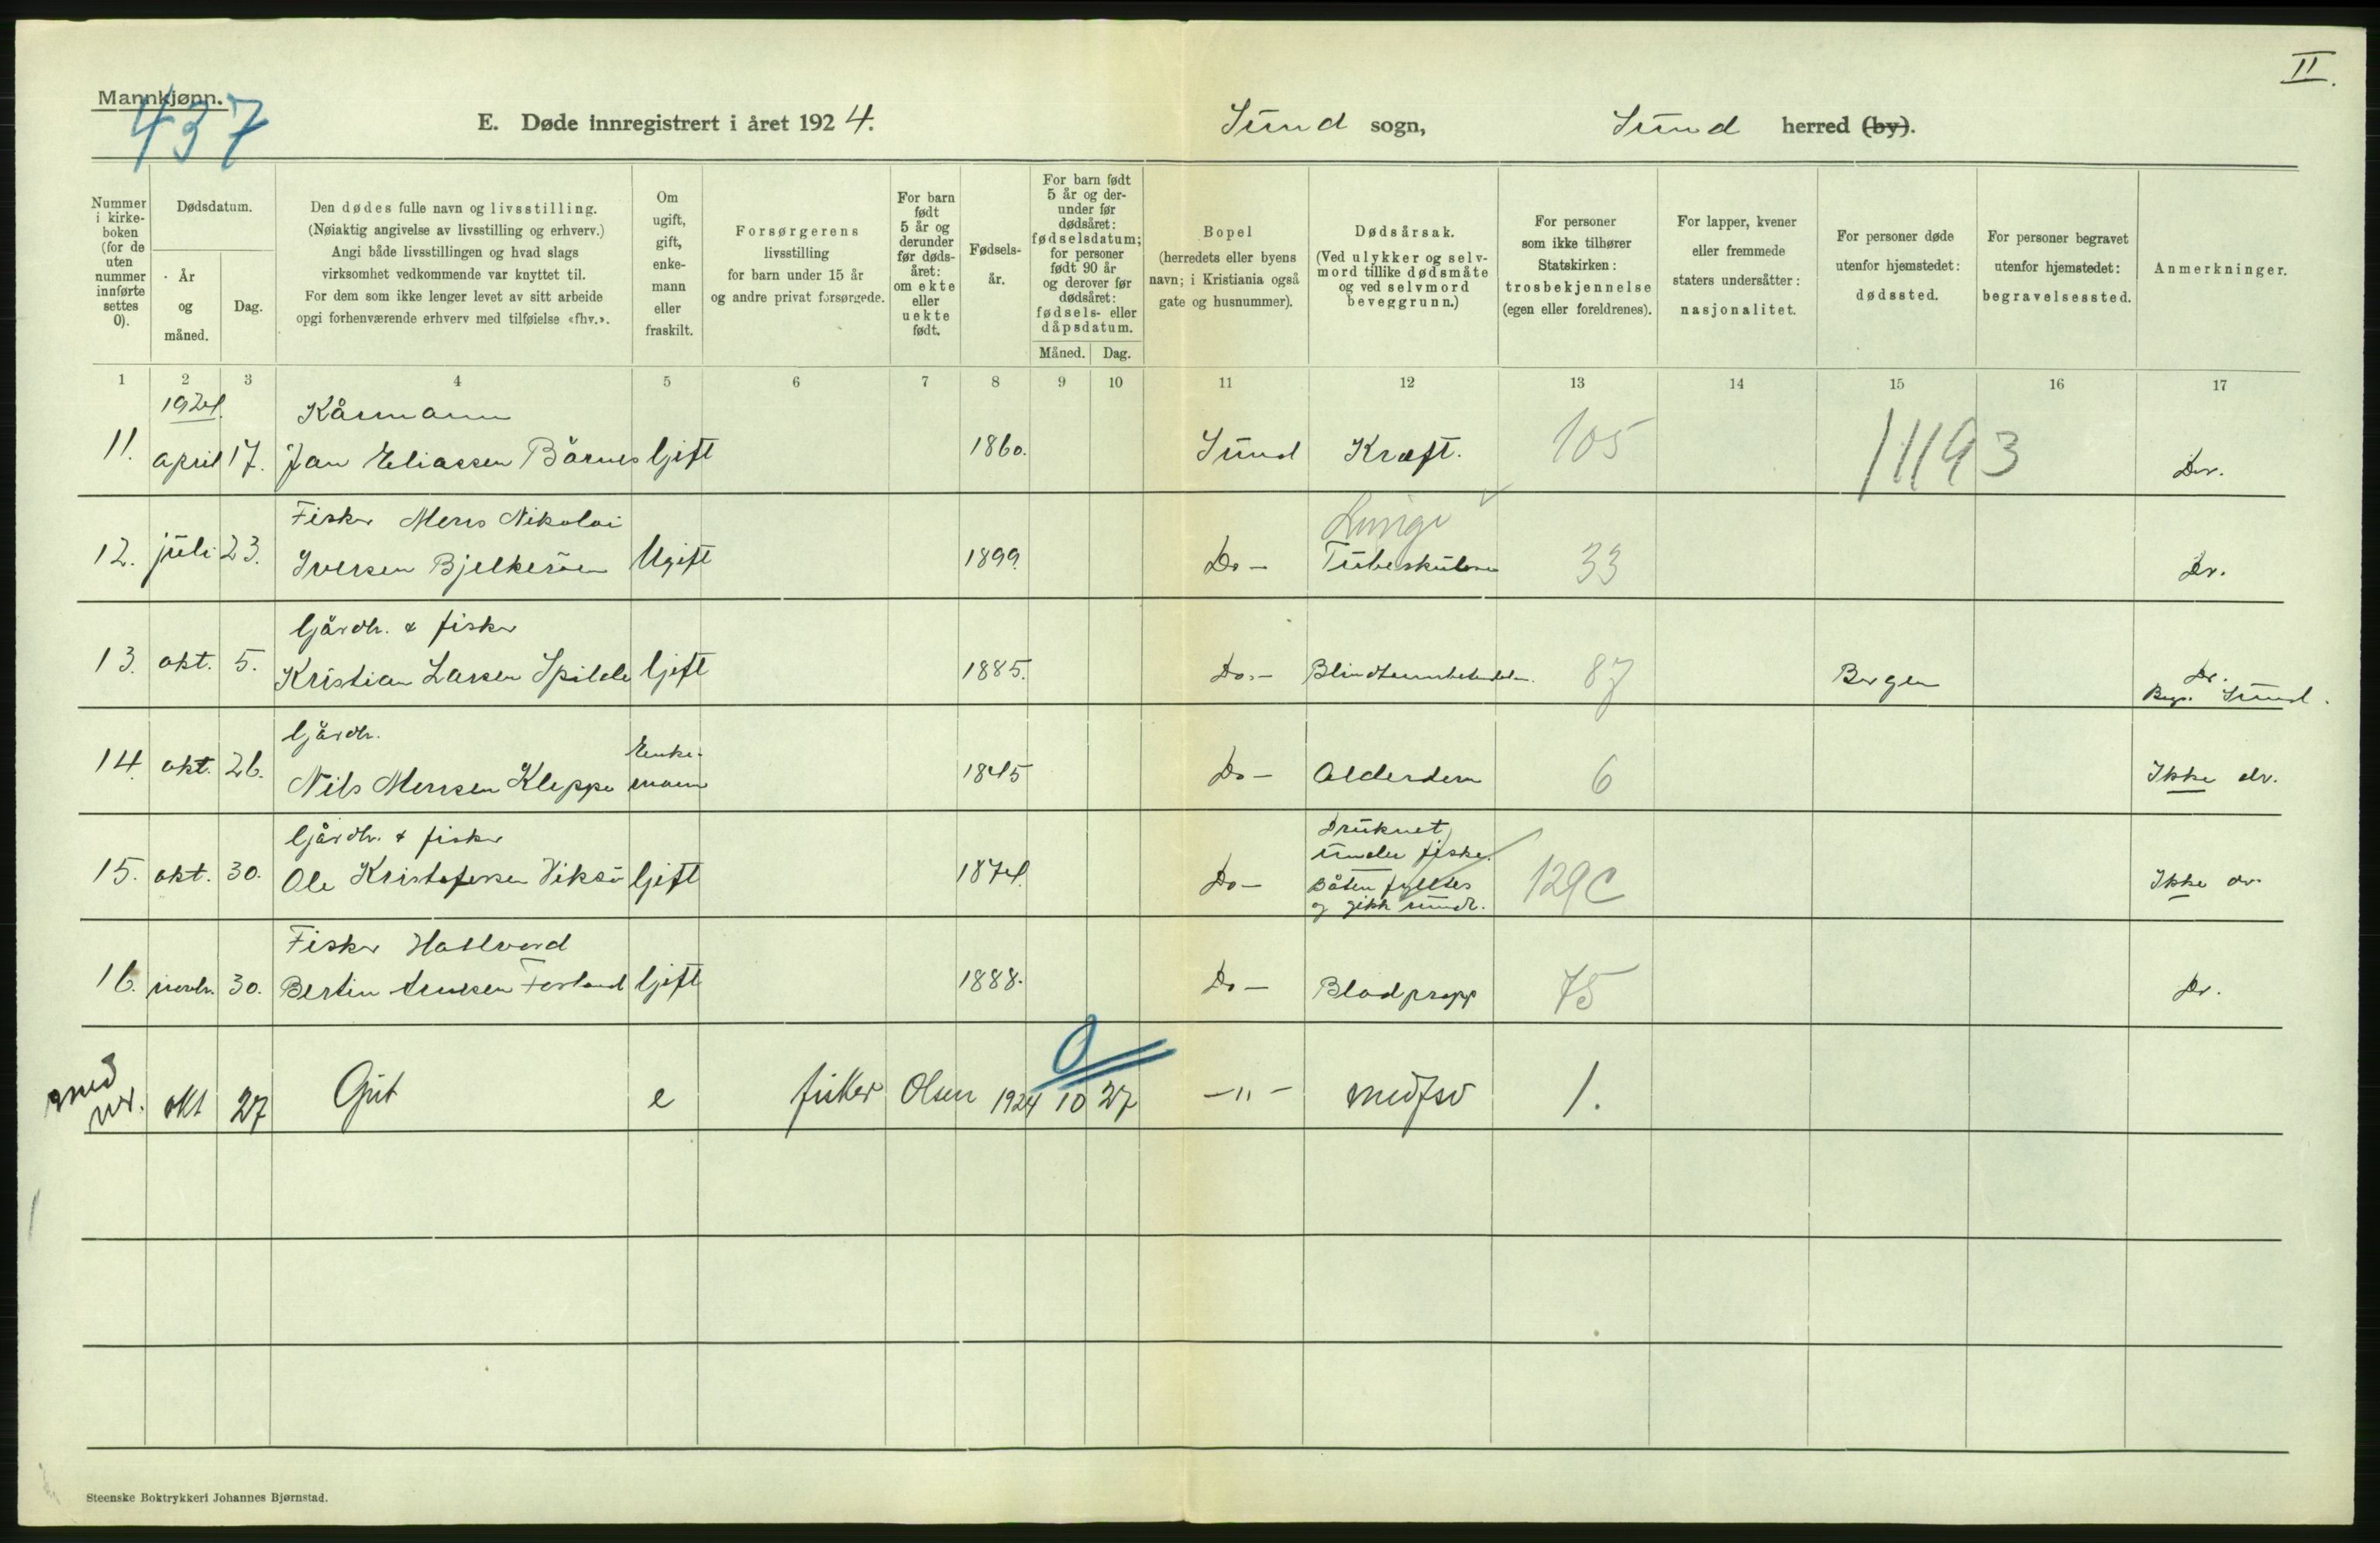 II.
Mannkjønn.
437
E. Døde innregistrert i året 1924. Sund sogn, Sund herred (by).
Nummer i kirkeboken (for de uten nummer innførte settes 0).
Dødsdatum.
År og måned.
Dag.
Den dødes fulle navn og livsstilling.
(Nøiaktig angivelse av livsstilling og erhverv.)
Angi både livsstillingen og hvad slags
virksomhet vedkommende var knyttet til.
For dem som ikke lenger levet av sitt arbeide
opgi forhenværende erhverv med tilføielse «fhv.».
Om ugift, gift, enkemann eller fraskilt.
Forsørgerens
livsstilling
for barn under 15 år
og andre privat forsørgede.
For barn født 5 år og derunder før dødsåret: om ekte eller uekte født.
Fødselsår.
For barn født 5 år og derunder før dødsåret: fødselsdatum; for personer født 90 år og derover før dødsåret: fødsels- eller dåpsdatum.
Måned. Dag.
Bopel
(herredets eller byens
navn; i Kristiania også
gate og husnummer).
Dødsårsak.
(Ved ulykker og selvmord tillike dødsmåte
og ved selvmord
beveggrunn.)
For personer
som ikke tilhører
Statskirken:
trosbekjennelse
(egen eller foreldrenes).
For lapper, kvener
eller fremmede
staters undersåtter:
nasjonalitet.
For personer døde
utenfor hjemstedet:
dødssted.
For personer begravet
utenfor hjemstedet:
begravelsessted.
Anmerkninger.
1 2 3 4 5 6 7 8 9 10 11 12 13 14 15 16 17
1924. Kårmann
11. april 17. Jan Eliassen Børnes Gift 1860. Sund Kræft. 105 11193 Dr.
Fisker Mens Nikolai Lunge
12. juli 23. Iversen Bjelkerøen Ugift 1899. Do - Tuberkulose 33 Dr.
Gårdbr. & fisker
13. okt. 5. Kristian Larsen Spilde Gift 1885. Do. - 87 Bergen Dr.
Begr. Sund.
Gårdbr. Enke-
14. okt. 26. Nils Monsen Kleppe mann 1845 Do - Alderdom 6 Ikke dr.
Gårdbr. & fisker Druknet
under fiske.
15. okt. 30. Ole Kristofersen Viksø Gift 1874. Do - Båten fylltes 129C Ikke dr.
og gikk rundt.
Fisker Hallvard
16. novbr. 30. Bertin Arnesen Forland Gift 1888. Do - Blodpropp 75 Dr.
0
med
nr. okt 27 Gut e fisker Olsen 1924 10 27 -"- medfsv 1.
Steenske Boktrykkeri Johannes Bjørnstad.